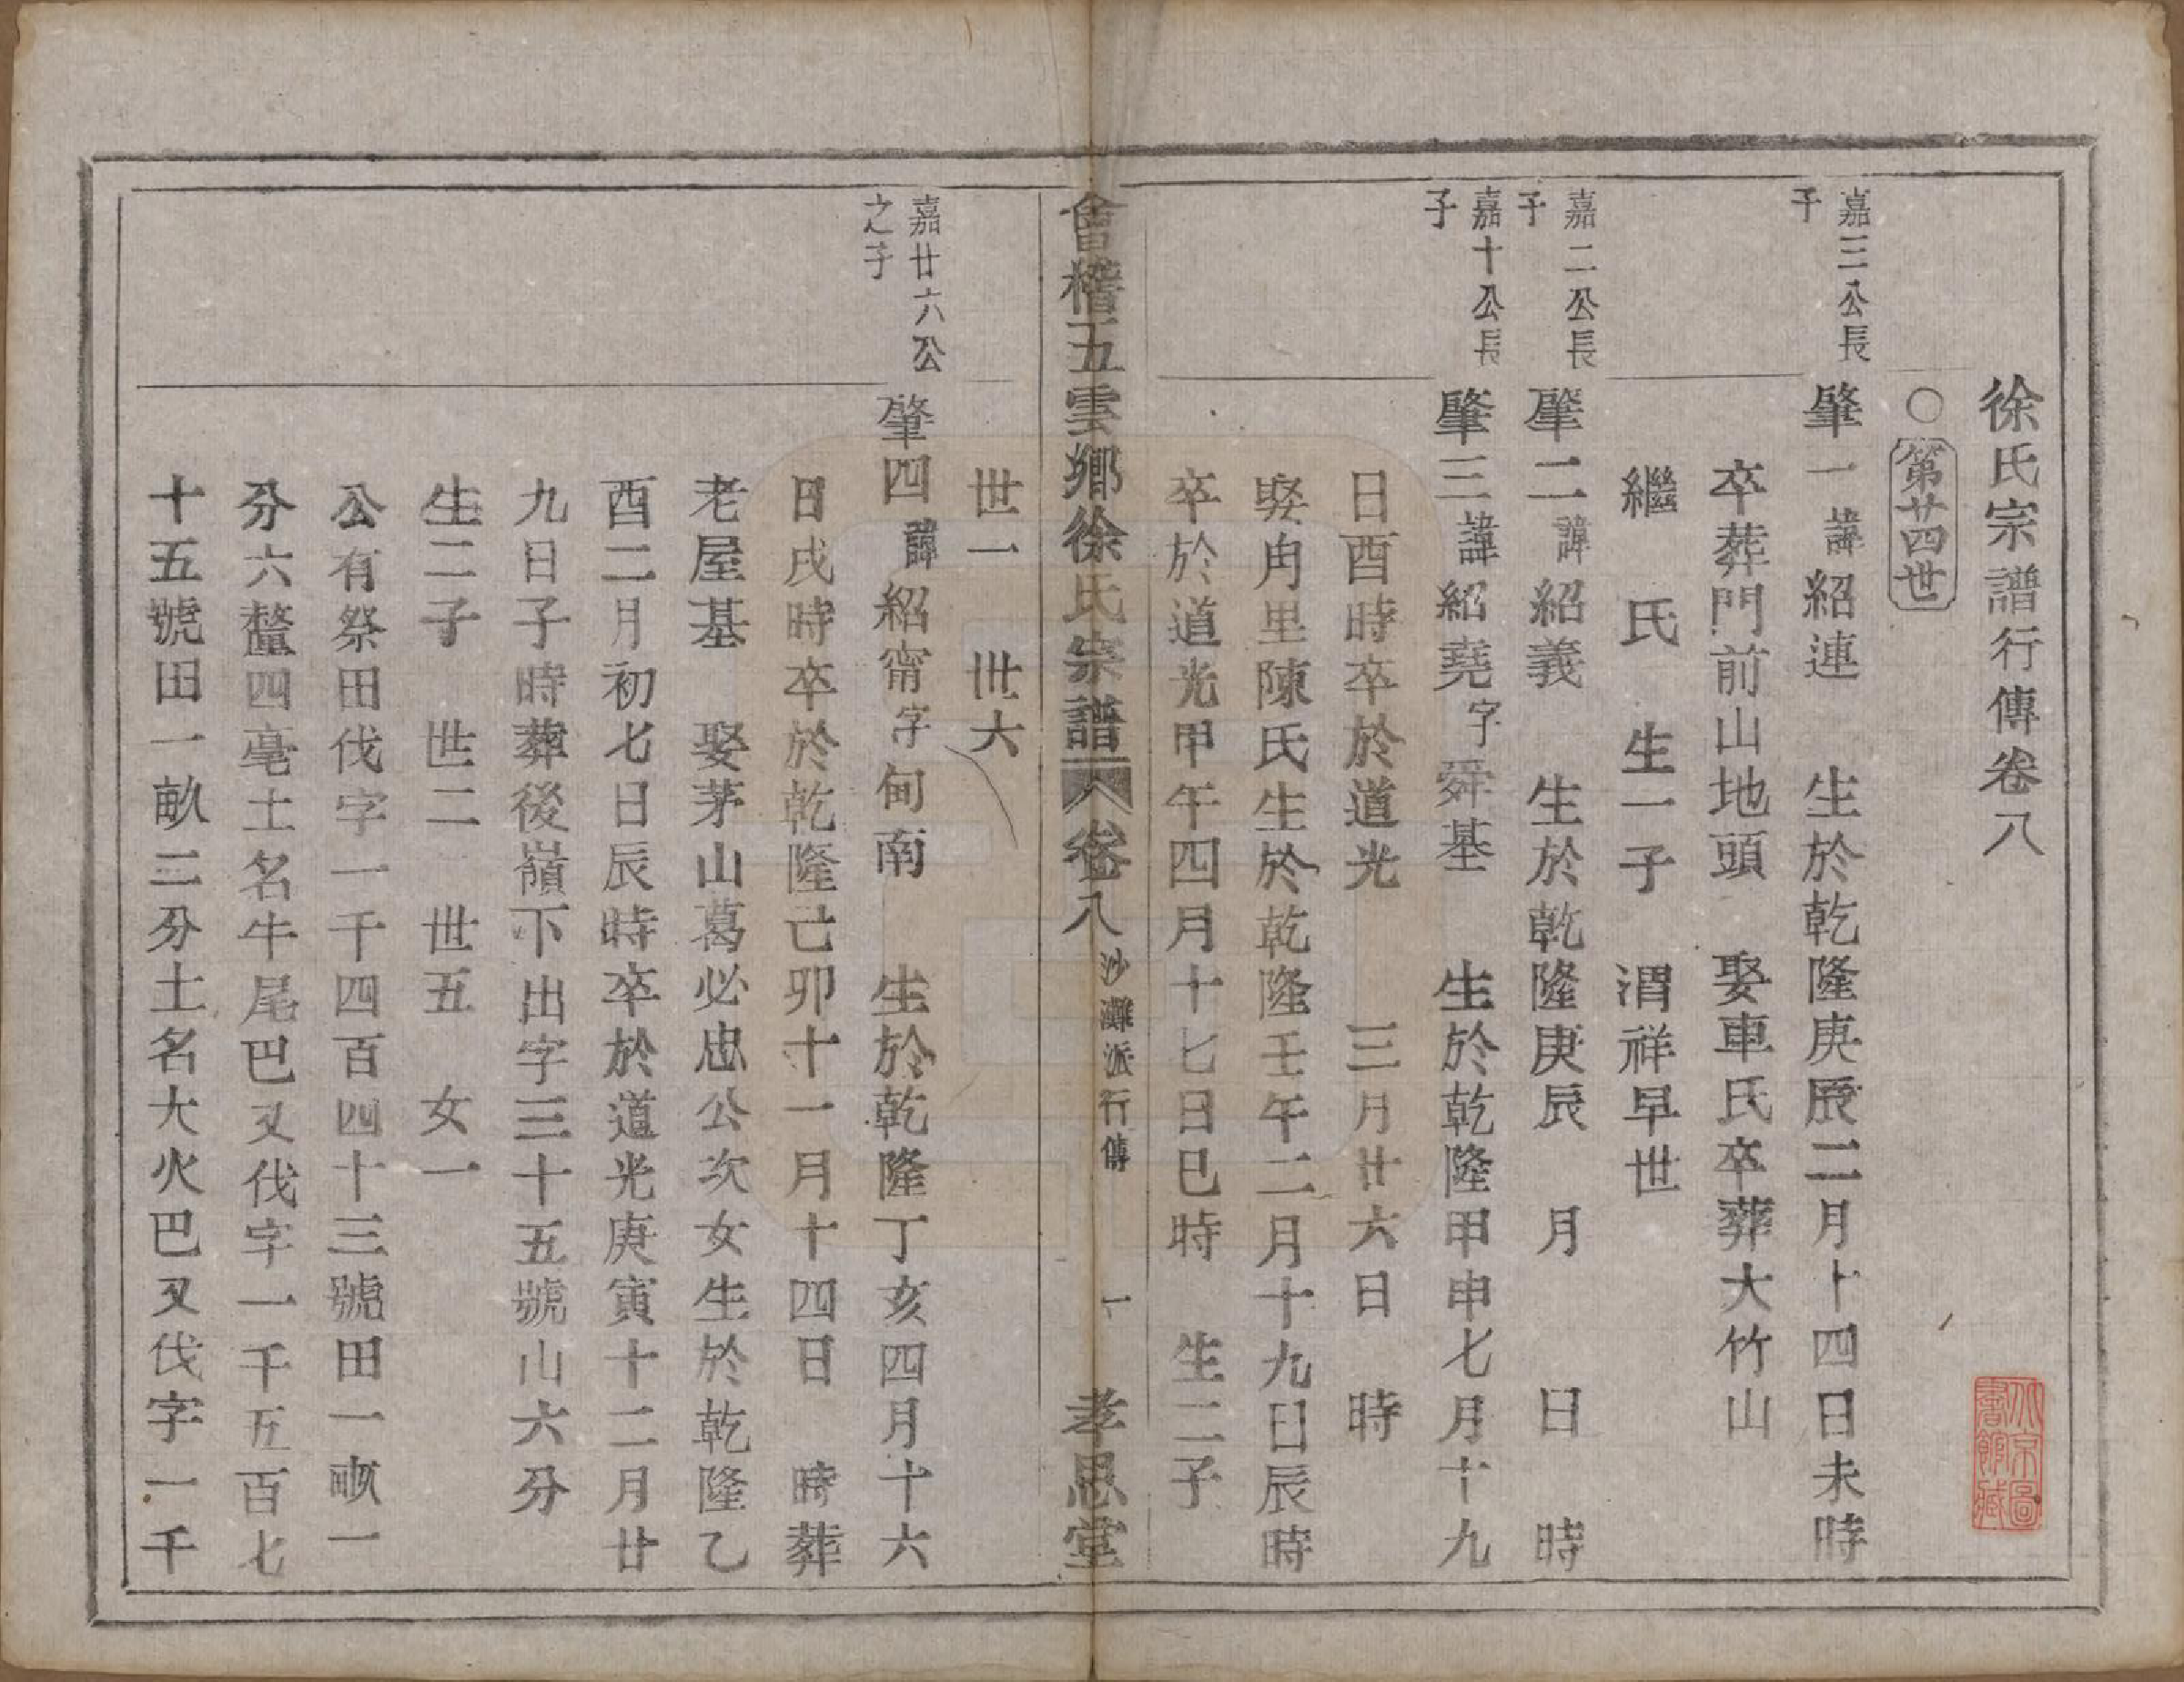 徐氏宗譜行傳卷八
○第廿四世
嘉三公長子
肇一諱紹連 生於乾隆庚辰二月十四日未時
卒葬門前山地頭 娶車氏卒葬大竹山
繼 氏 生一子 渭祥早世
嘉二公長子
肇二諱紹義 生於乾隆庚辰 月 日 時
嘉十公長子
肇三諱紹堯字舜基 生於乾隆甲申七月十九
日酉時卒於道光 三月廿六日 時
娶冉里陳氏生於乾隆壬午二月十九日辰時
卒於道光甲午四月十七日巳時 生二子
世一 世六
會稽五雲鄉徐氏宗譜 卷八 沙灘派行傳 一 孝思堂
嘉廿六公之子
肇四諱紹甯字甸南 生於乾隆丁亥四月十六
日戌時卒於乾隆己卯十一月十四日 時葬
老屋基 娶茅山葛必忠公次女生於乾隆乙
酉二月初七日辰時卒於道光庚寅十二月廿
九日子時葬後嶺下出字三十五號山六分
生二子 世二 世五 女一
公有祭田伐字一千四百四十三號田一畝一
分六釐四毫土名牛尾巴又伐字一千五百七
十五號田一畝三分土名大火巴又伐字一千